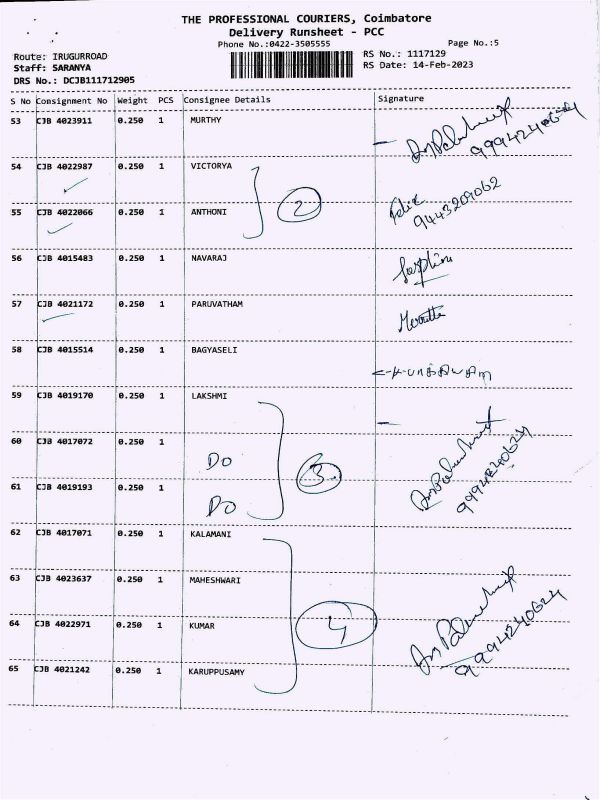 THE PROFESSIONAL COURIERS, Coimbatore
Delivery Runsheet - PCC
Phone No.:0422-3505555
Page No.:5
Route: IRUGURROAD
RS No.: 1117129
Staff: SARANYA
RS Date: 14-Feb-2023
DRS No.: DCJB111712905
S No Consignment No Weight PCS Consignee Details Signature
53 CJB 4023911 0.250 1 MURTHY
9994240624
54 CJB 4022987 0.250 1 VICTORYA
2
Felix
9443209062
55 CJB 4022066 0.250 1 ANTHONI
56 CJB 4015483 0.250 1 NAVARAJ
57 CJB 4021172 0.250 1 PARUVATHAM
58 CJB 4015514 0.250 1 BAGYASELI
59 CJB 4019170 0.250 1 LAKSHMI
60 CJB 4017072 0.250 1 DO
3
9994240624
61 CJB 4019193 0.250 1 DO
62 CJB 4017071 0.250 1 KALAMANI
63 CJB 4023637 0.250 1 MAHESHWARI
4
64 CJB 4022971 0.250 1 KUMAR
9994240624
65 CJB 4021242 0.250 1 KARUPPUSAMY